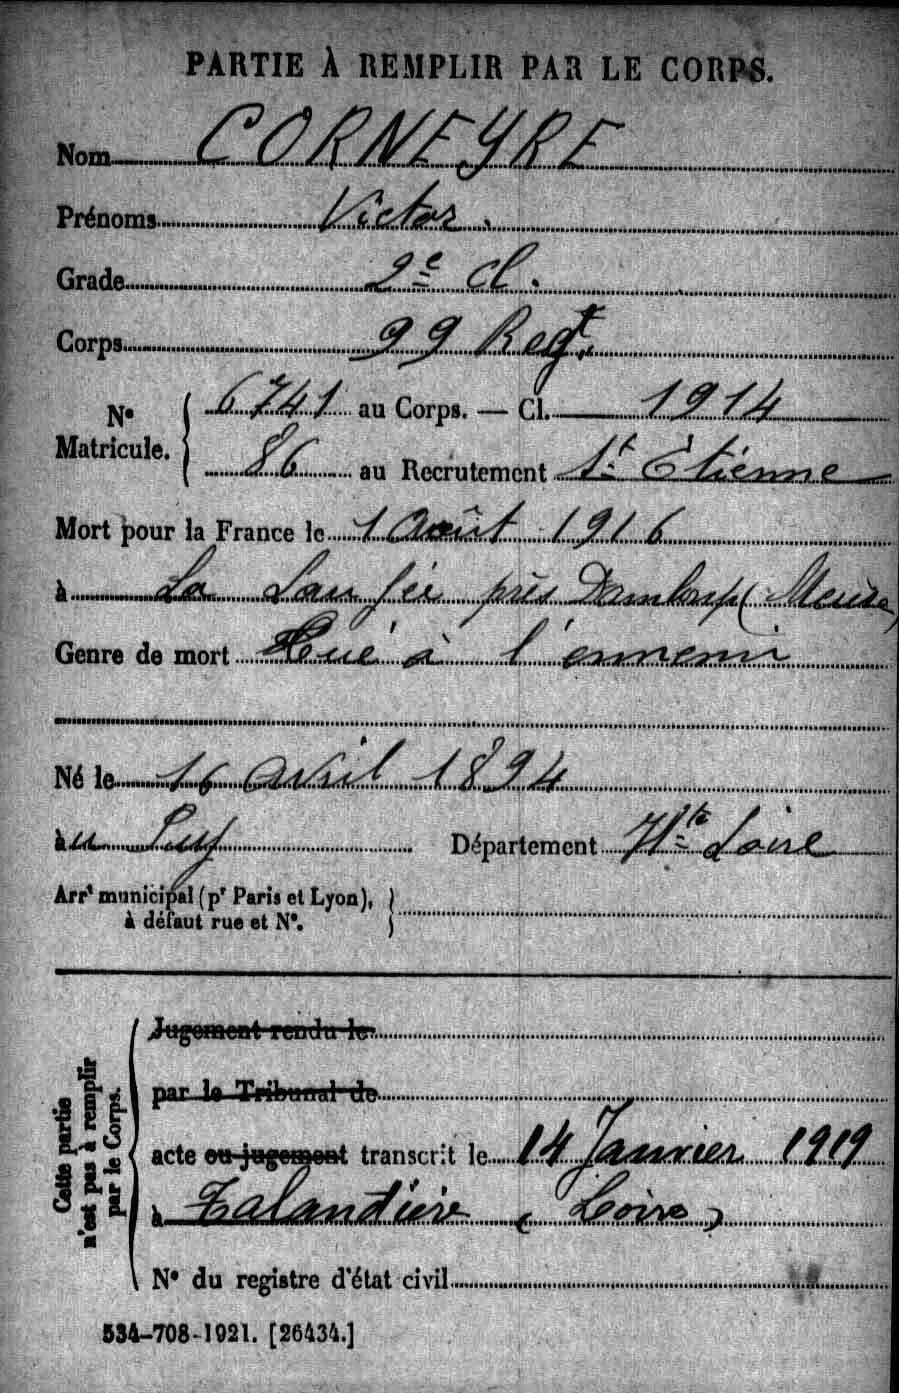 PARTIE À REMPLIR PAR LE CORPS.
Nom CORNEYRE
Prénoms Victor.
Grade 2e cl.
Corps 99 Regt.
No Matricule. 6741 au Corps. — Cl. 1914
86 au Recrutement St Etienne
Mort pour la France le 1 Août 1916
à La Laufée près Damloup (Meuse)
Genre de mort Tué à l'ennemi
Né le 16 avril 1894
au Puy Département Hte Loire
Arrt municipal (pr Paris et Lyon),
à défaut rue et No.
Cette partie
n'est pas à remplir
par le Corps.
Jugement rendu le
par le Tribunal de
acte ou jugement transcrit le 14 Janvier 1919
à Talaudière (Loire)
No du registre d'état civil
534-708-1921. [26434.]